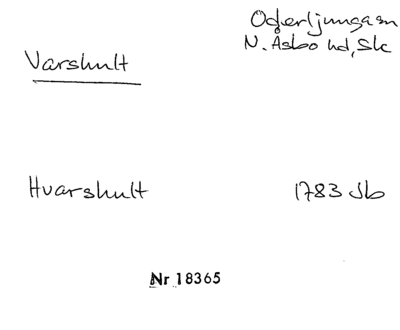 Oderljunga sn
N. Åsbo hd, Sk
Varshult
Hvarshult 1783 Jb
Nr 18365